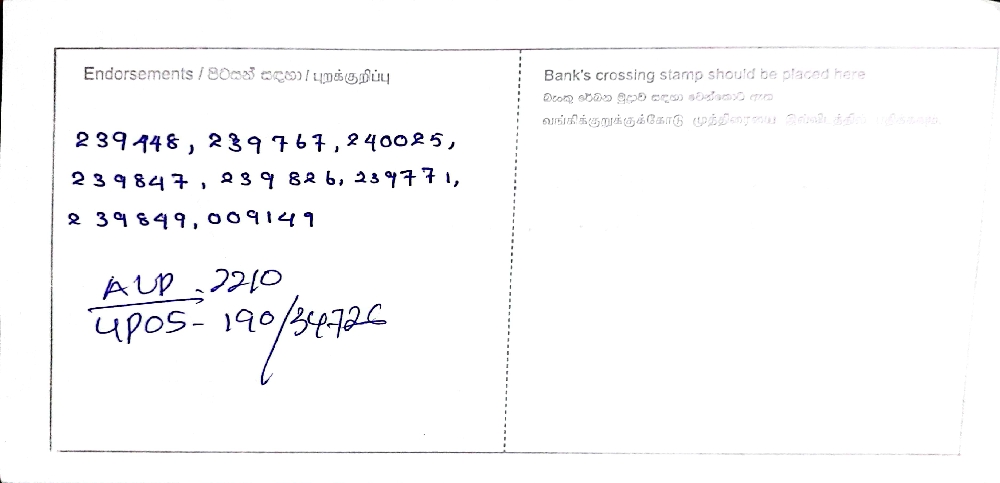 Endorsements / පිටසන් සඳහා / புறக்குறிப்பு
Bank's crossing stamp should be placed here
බැංකු රේඛන මුද්‍රාව සඳහා වෙන්කොට ඇත
வங்கிக்குறுக்குக்கோடு முத்திரையை இவ்விடத்தில் பதிக்கவும்
239448, 239767, 240025,
239847, 239826, 239771,
239849, 009149
AUP - 2210
UPOS - 190/34726